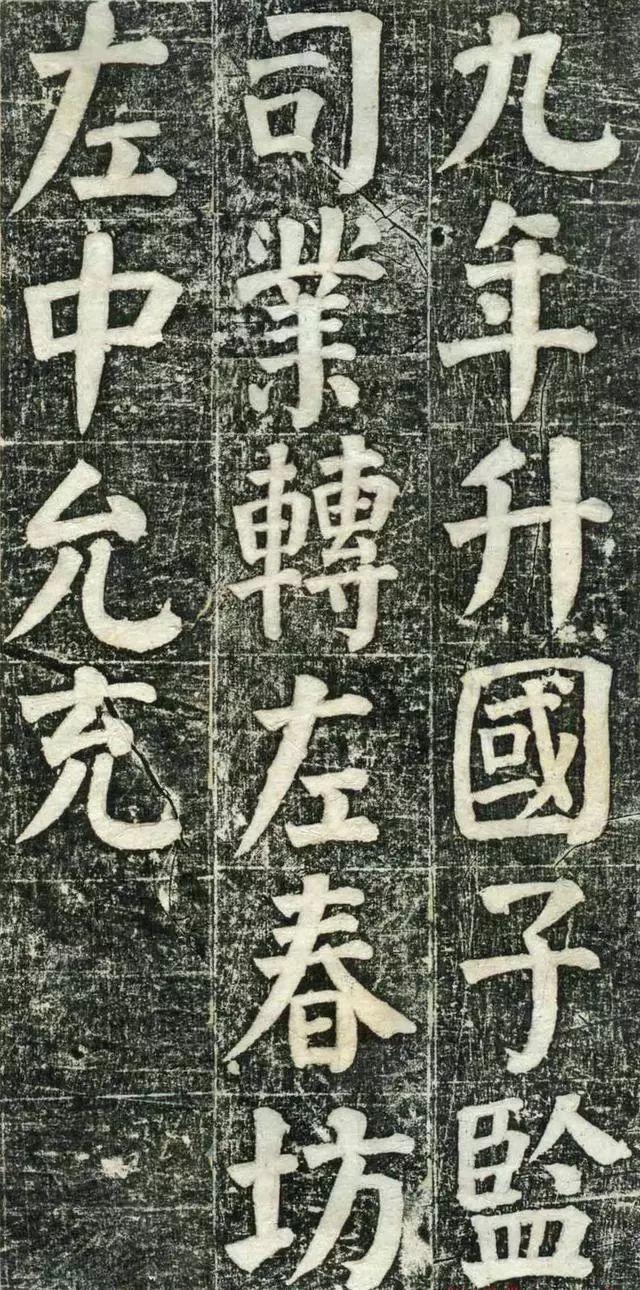 九年升國子監
司業轉左春坊
左中允充